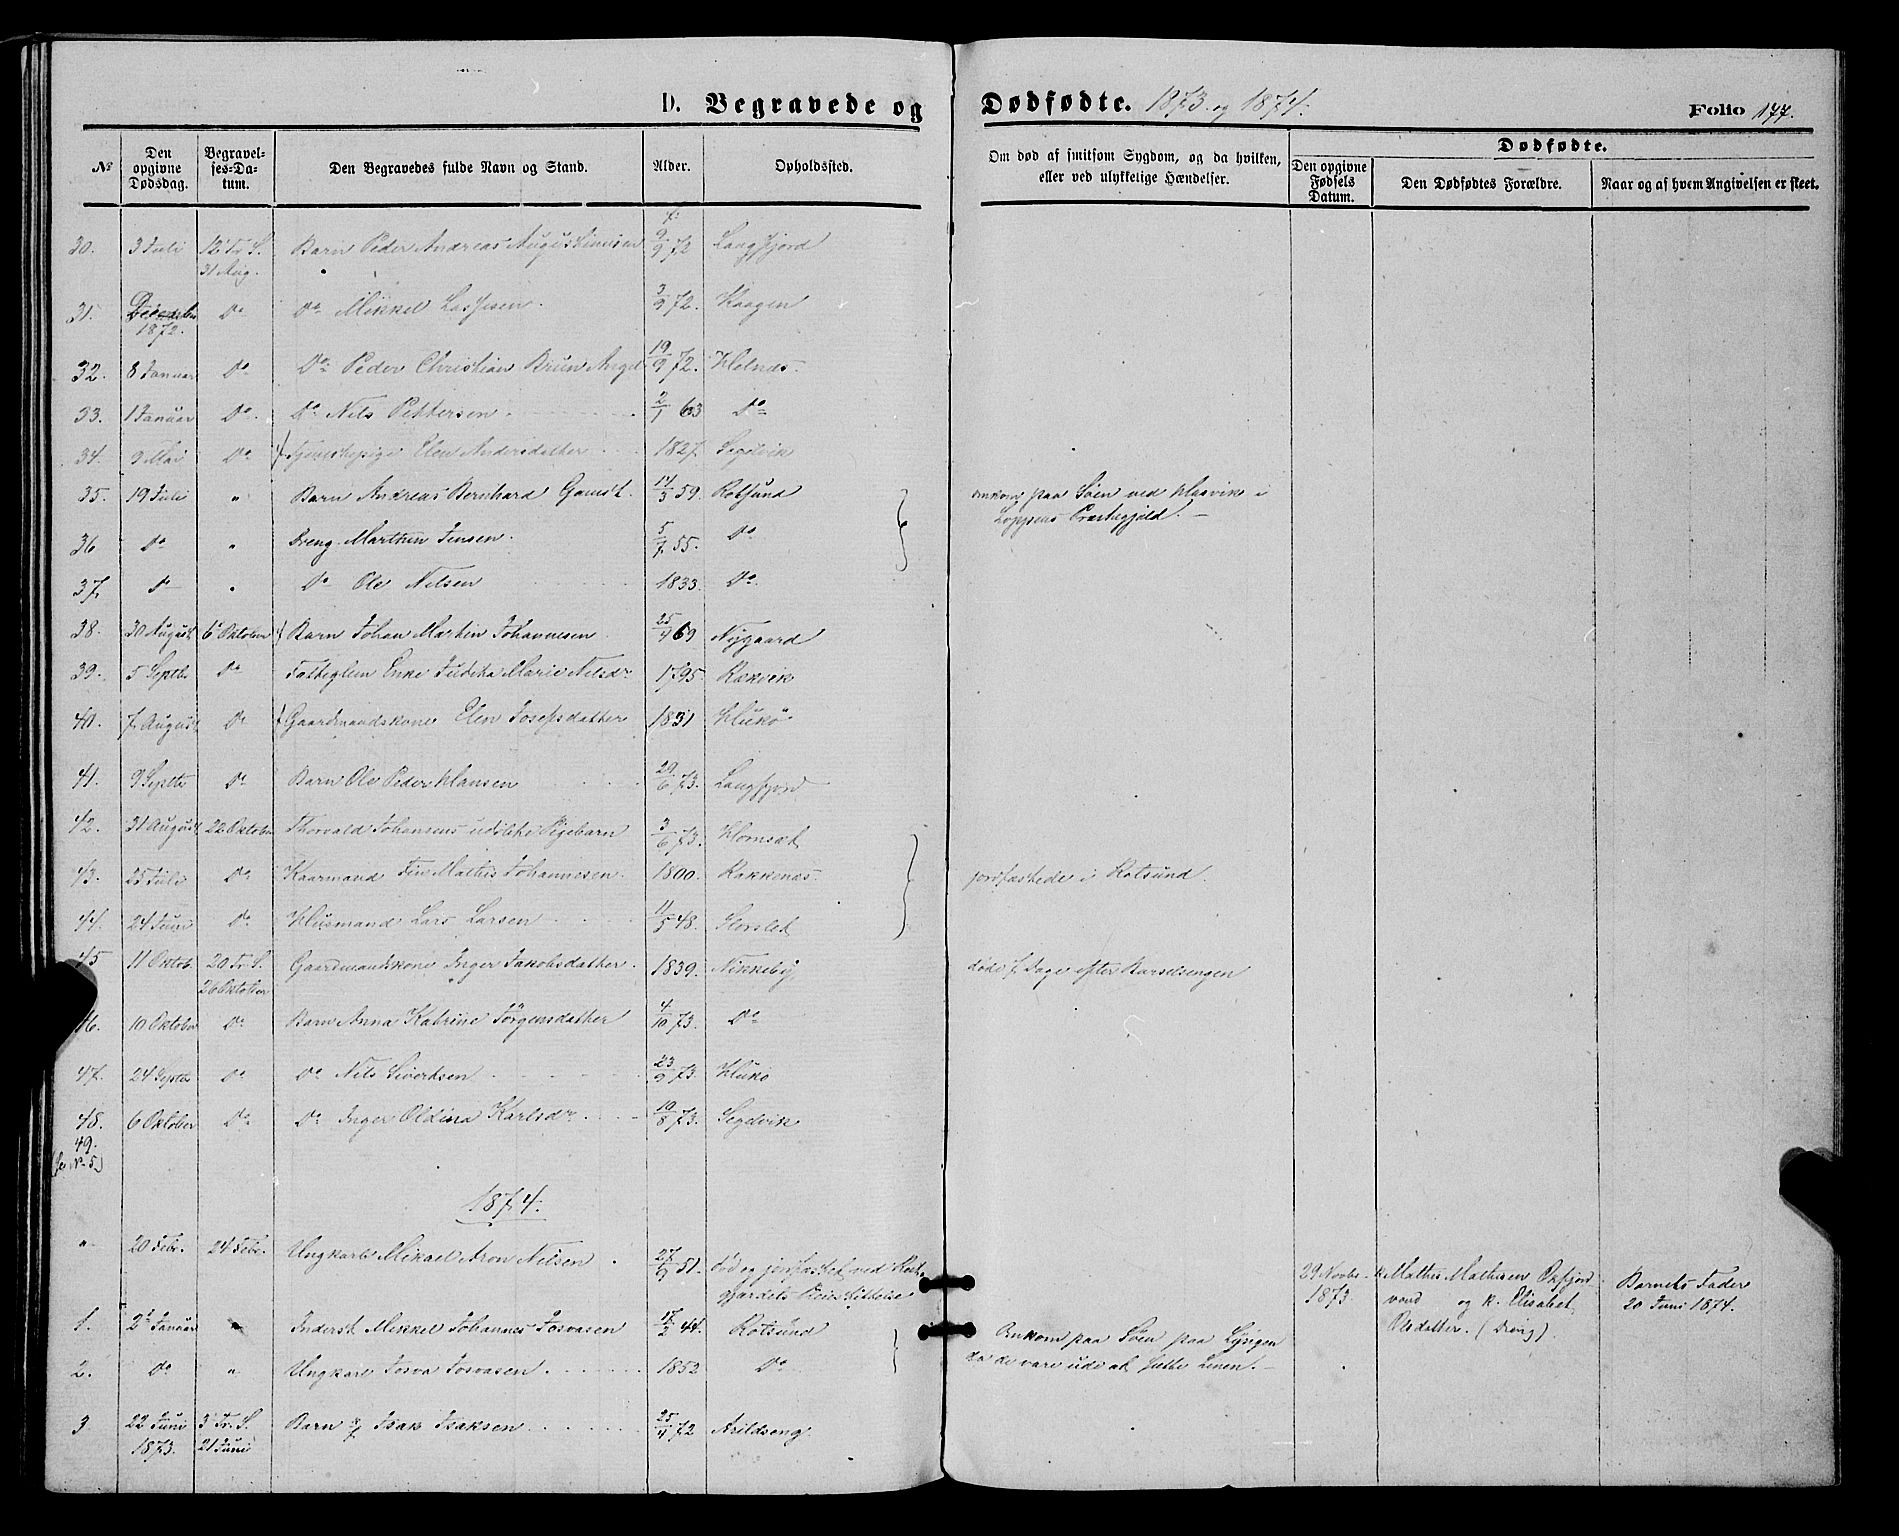 D. Begravede og Dødfødte. 1873 og 1874. Folio 177.
Dødfødte.
No
Den opgivne Dødsdag.
Begravelses-Datum.
Den Begravedes fulde Navn og Stand.
Alder.
Opholdssted.
Om død af smitsom Sygdom, og da hvilken, eller ved ulykkelige Hændelser.
Den opgivne Fødsels Datum.
Den Dødfødtes Forældre.
Naar og af hvem Angivelsen er skeet.
30. 3 Juli 12 S. Tr. 31 Aug. Barn Peder Andreas Augustinusen 9/9 72 Langfjord
31. December 1872. Do Do Mikkel Lassesen. 3/9 72. Kaagen
32. 8 Januar Do Do Peder Christian Brun 19/9 72. Holnæs.
33. 1 Januar Do. Do Nils Pettersen 2/1 63 Do
34. 9 Mai Do Tjenestepige Elen Andersdatter 1827. Segelvik
35. 19 Juli " Barn Andreas Bernhard Gamst. 59. Rotsund omkom paa Søen ved Hasvik i
Loppens Præstegjeld. —
36 Do " Dreng Marthin Jensen. 5/7 55. Do
37. Do " Do Ole Nilsen 1833. Do
38. 30 August 6 Oktober Barn Johan Martin Johannesen. 25/4 69 Nygaard
39. 5 Septbr Do Fattiglem Enke Juditha Marie Nilsdr 1795. Rækvik
40. 7 August Do Gaardmandskone Elen Josefsdatter 1831 Hukø
41. 9 Septbr Do Barn Ole Peder Hansen 29/6 73. Langfjord
42. 31 August 22 Oktober Thorvald Johansens udøbte Pigebarn 3/6 73. Homsæt
43. 25 Juli Do Kaarmand Fin Mathis Johannesen. 1800. Rakkenæs. jordfæstede i Rotsund.
44. 24 Juni Do Husmand Lars Larsen 11/5 48. Storslet
45 11 Oktob. 20 S. Tr. 26 Oktober Gaardmandskone Inger Jakobsdatter. 1839. Nikkeby døde 7 Dage efter Barselsengen
46. 10 Oktober Do Barn Anna Katrine Jørgensdatter 4/10 73. Do
47. 24 Septbr Do Do Nils Sivertsen 23/9 73. Hukø
48. 6 Oktober Do Do Inger Oldina Karlsdr. 19/8 73. Segelvik
49.
(Se No 5.)
1874.
" 20 Febr. 24 Febr. Ungkarl Mikael Aron Nilsen. 27/9 51. død og jordfæstet ved
29 Novbr 1873. Mathis Mathisen Oxfjord
vand og K. Elisabet
Olsdatter. (Dreng)
Barnets Fader
20 Juni 1874.
1. 2 Januar " Inderst Mikkel Johannes Josvasen 17/2 44. Rotsund Omkom paa Søen paa Lyngen
da de vare ude at sætte Linen. —
2. Do " Ungkarl Josva Josvasen. 1852 Do
3 22 Juni 1873. 3 S. Tr. 21 Juni Barn Isak Isaksen 25/4 72 Arildseng